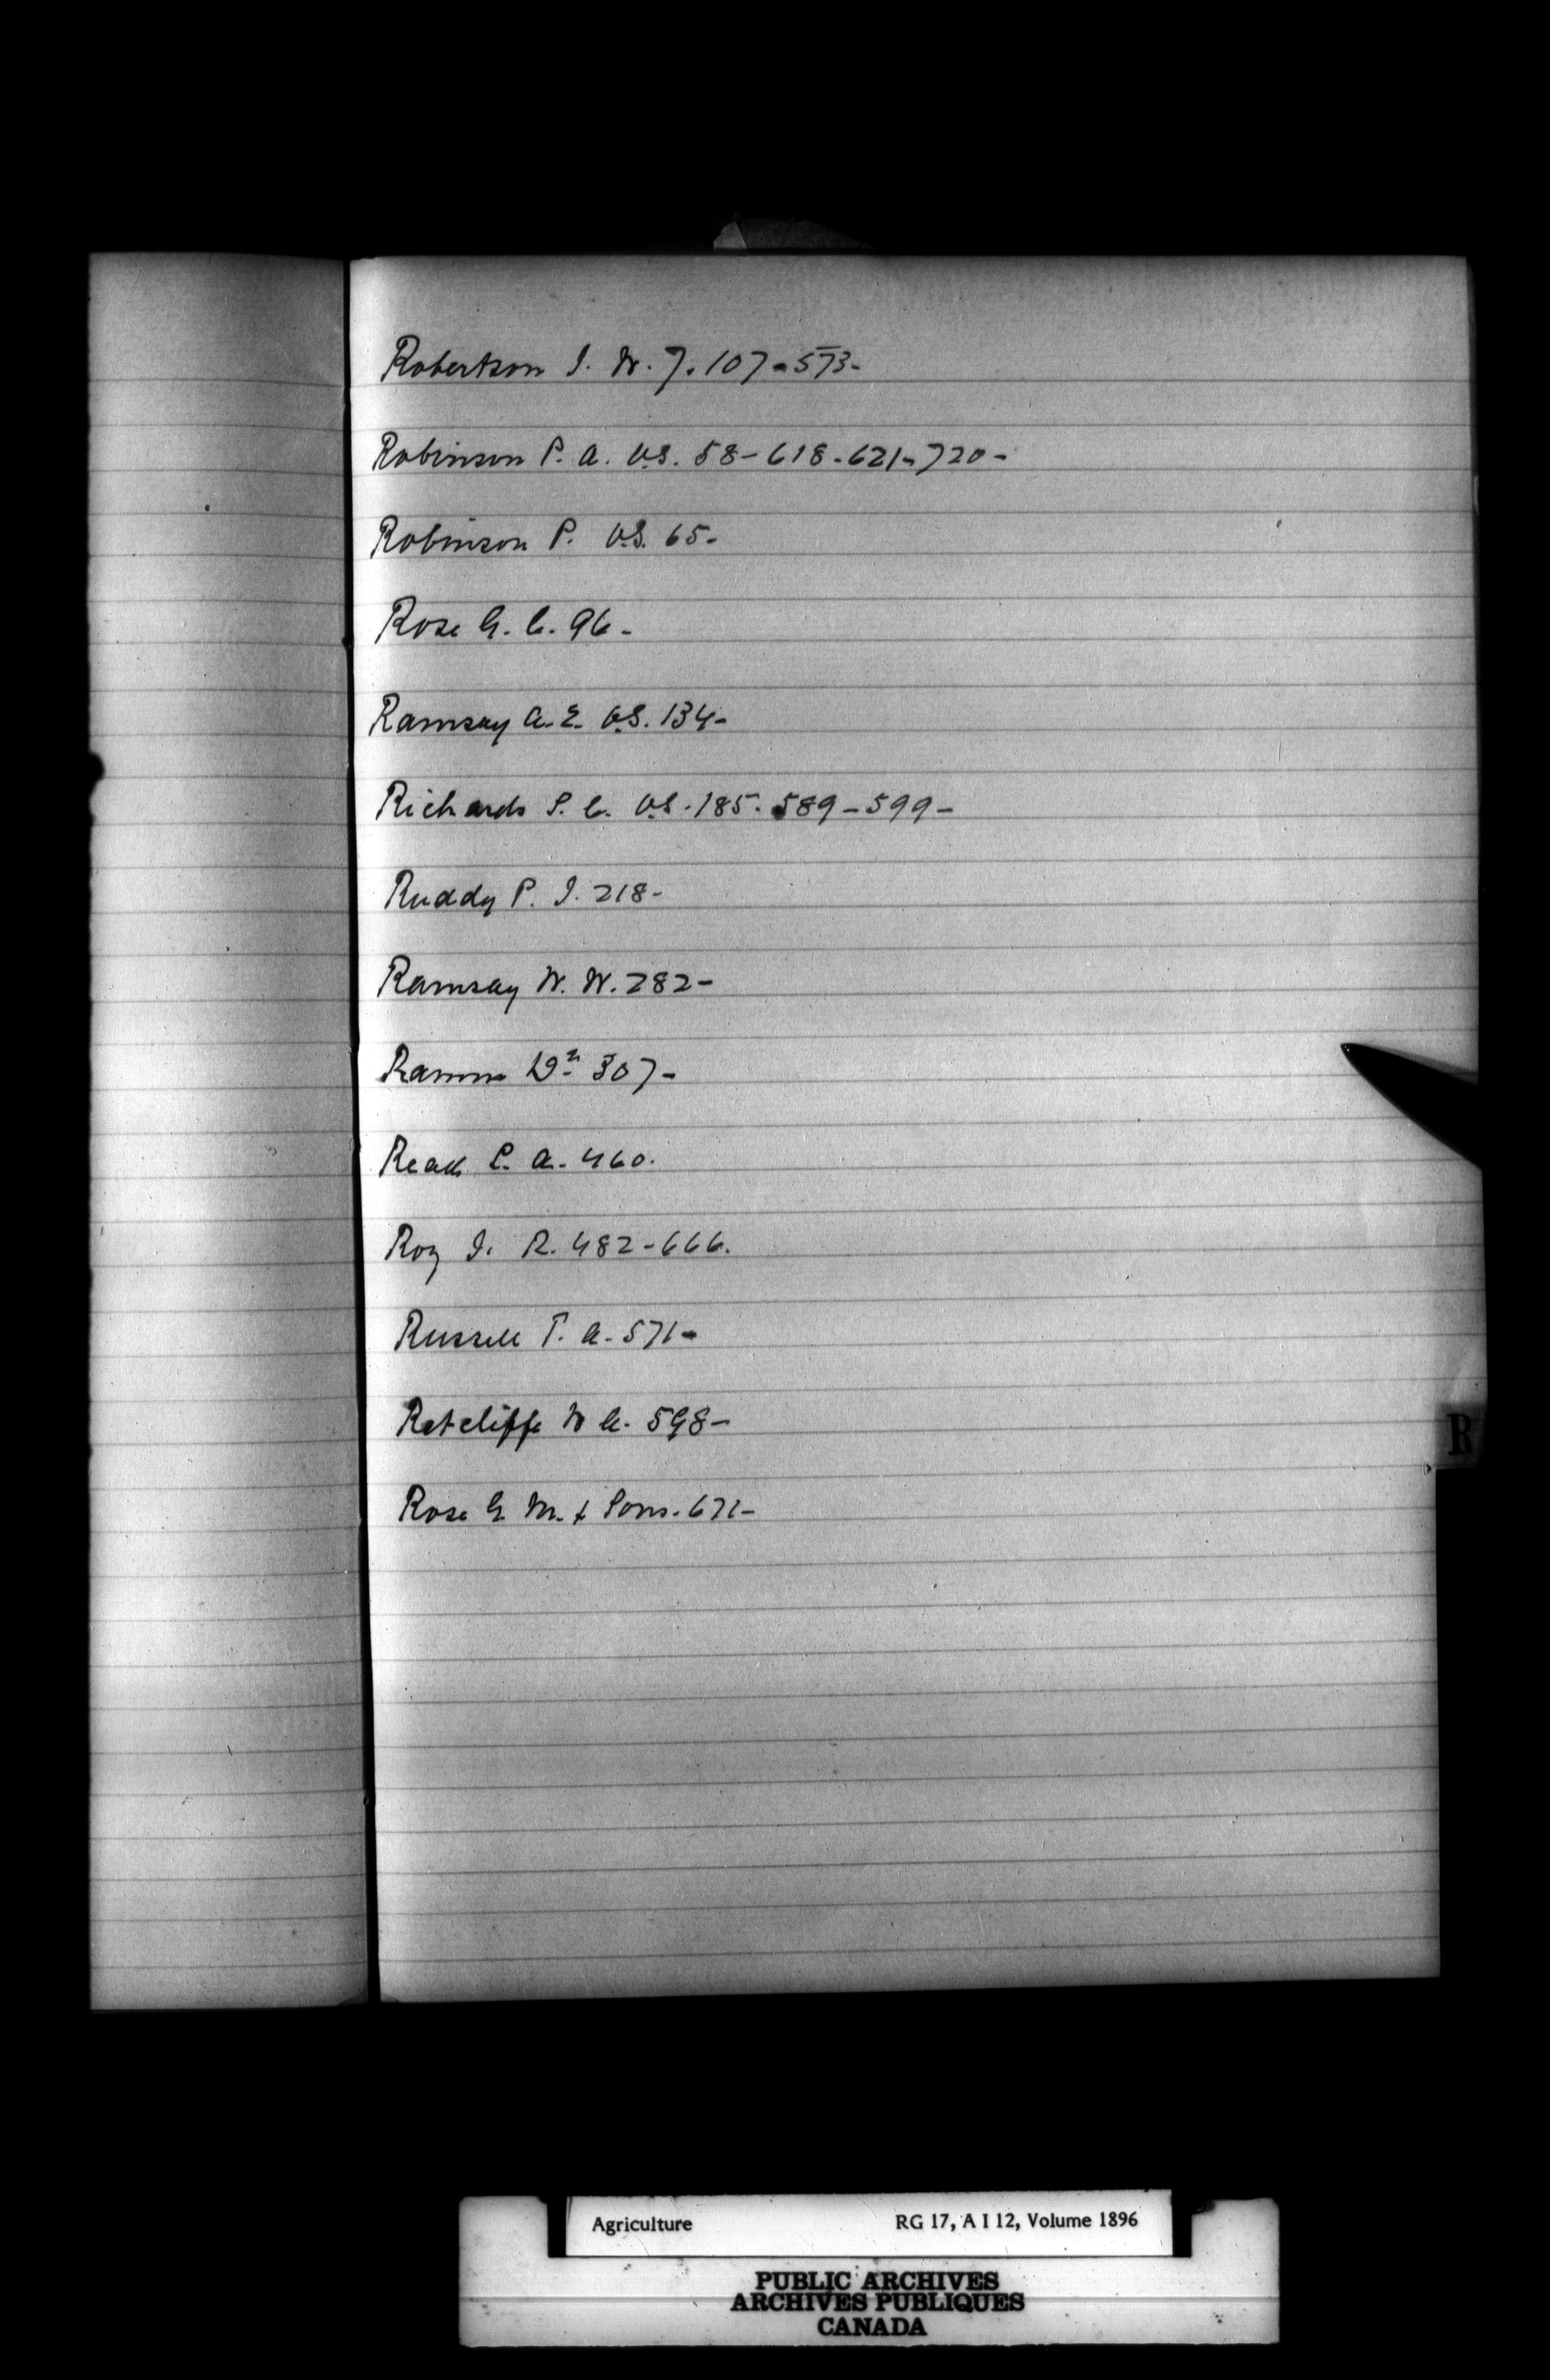 Robertson J. W. 7. 107-573-
Robinson P. A. V.S. 58-618-621-720-
Robinson P. V.S. 65-
Rose G. C. 96-
Ramsay A. E. V.S. 134-
Richards S. C. V.S. 185. 589-599-
Ruddy P. J. 218-
Ramsay W. W. 282-
307-
Read L. A. 460.
Roy J. R. 482-666.
Russell T. A. 571-
Ratcliffe W C. 598-
Rose G M. & Sons. 671-
R
Agriculture RG 17, A I 12, Volume 1896
PUBLIC ARCHIVES
ARCHIVES PUBLIQUES
CANADA